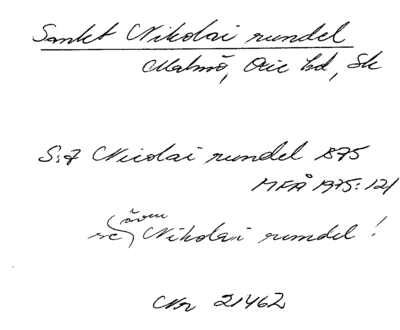 Sankt Nikolai rundel
Malmö, Oxie hd, Sk
S:t Nicolai rundel 1875
MFÅ 1975:121
även
Nikolai rundel!
Nr 21462